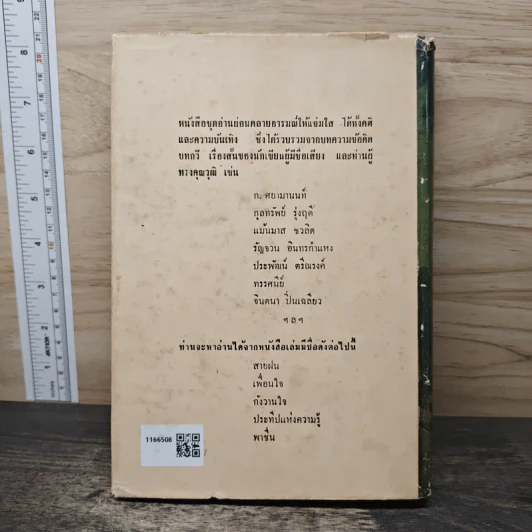 หนังสือชุดอ่านผ่อนคลายอารมณ์ให้แจ่มใส ได้ทั้งคติ
และความบันเทิง ซึ่งได้รวบรวมจากบทความข้อคิด
บทกวี เรื่องสั้นของนักเขียนผู้มีชื่อเสียง และท่านผู้
ทรงคุณวุฒิ เช่น
ก. ศยามานนท์
กุลทรัพย์ รุ่งฤดี
แม้นมาส ชวลิต
รัญจวน อินทรกำแหง
ประพัฒน์ ตรีณรงค์
ทรรศนีย์
จินตนา ปิ่นเฉลียว
ฯลฯ
ท่านจะหาอ่านได้จากหนังสือเล่มมีชื่อดังต่อไปนี้
สายฝน
เพื่อนใจ
กังวานใจ
ประทีปแห่งความรู้
พาชื่น
1166508